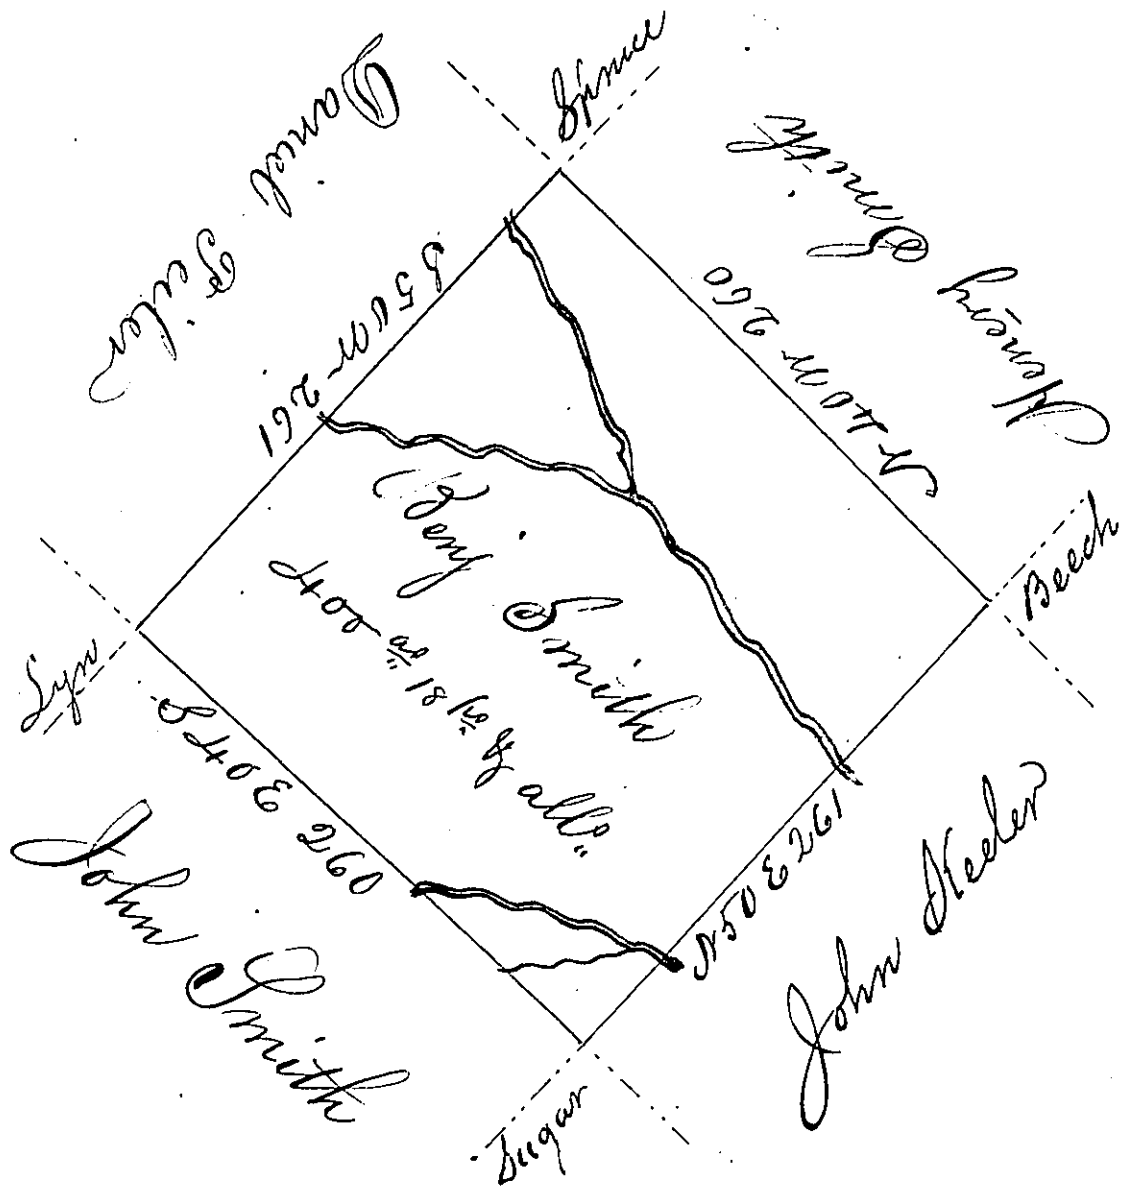 Spruce
Daniel
Tiler
Henry Smith
S 50 W 261
N 40 W 260
Benj Smith
400 as 18 ps & allo
Lyn
Beech
S 40 E 260
N 50 E 261
John Smith
John Keeler
Sugar